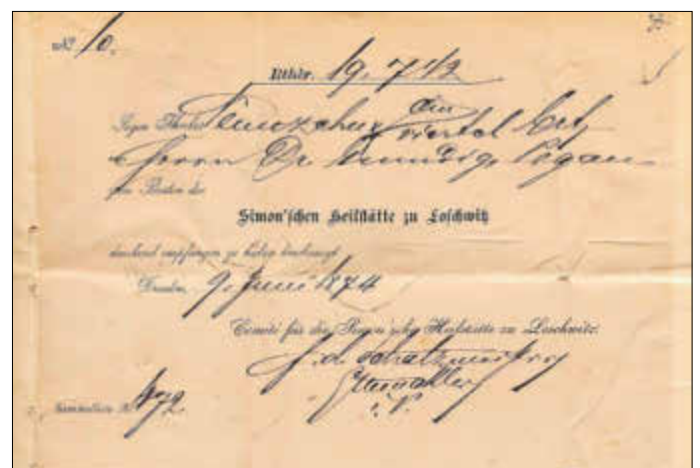 No. 10.
Rthlr. 19. 7 1/2
Neunzehn ein
viertel
Herrn Dr. Pegau
zum Besten der
Simon'schen Heilstätte zu Loschwitz
dankend empfangen zu haben
Dresden, 9. Juni 1874
Comité für die Simon'sche Heilstätte zu Loschwitz:
f. d. Schatzmeister
i. V.
472